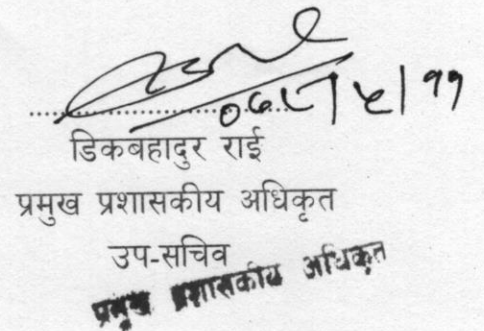 डिकबहादुर राई
प्रमुख प्रशासकीय अधिकृत
उप-सचिव
प्रमुख प्रशासकीय अधिकृत